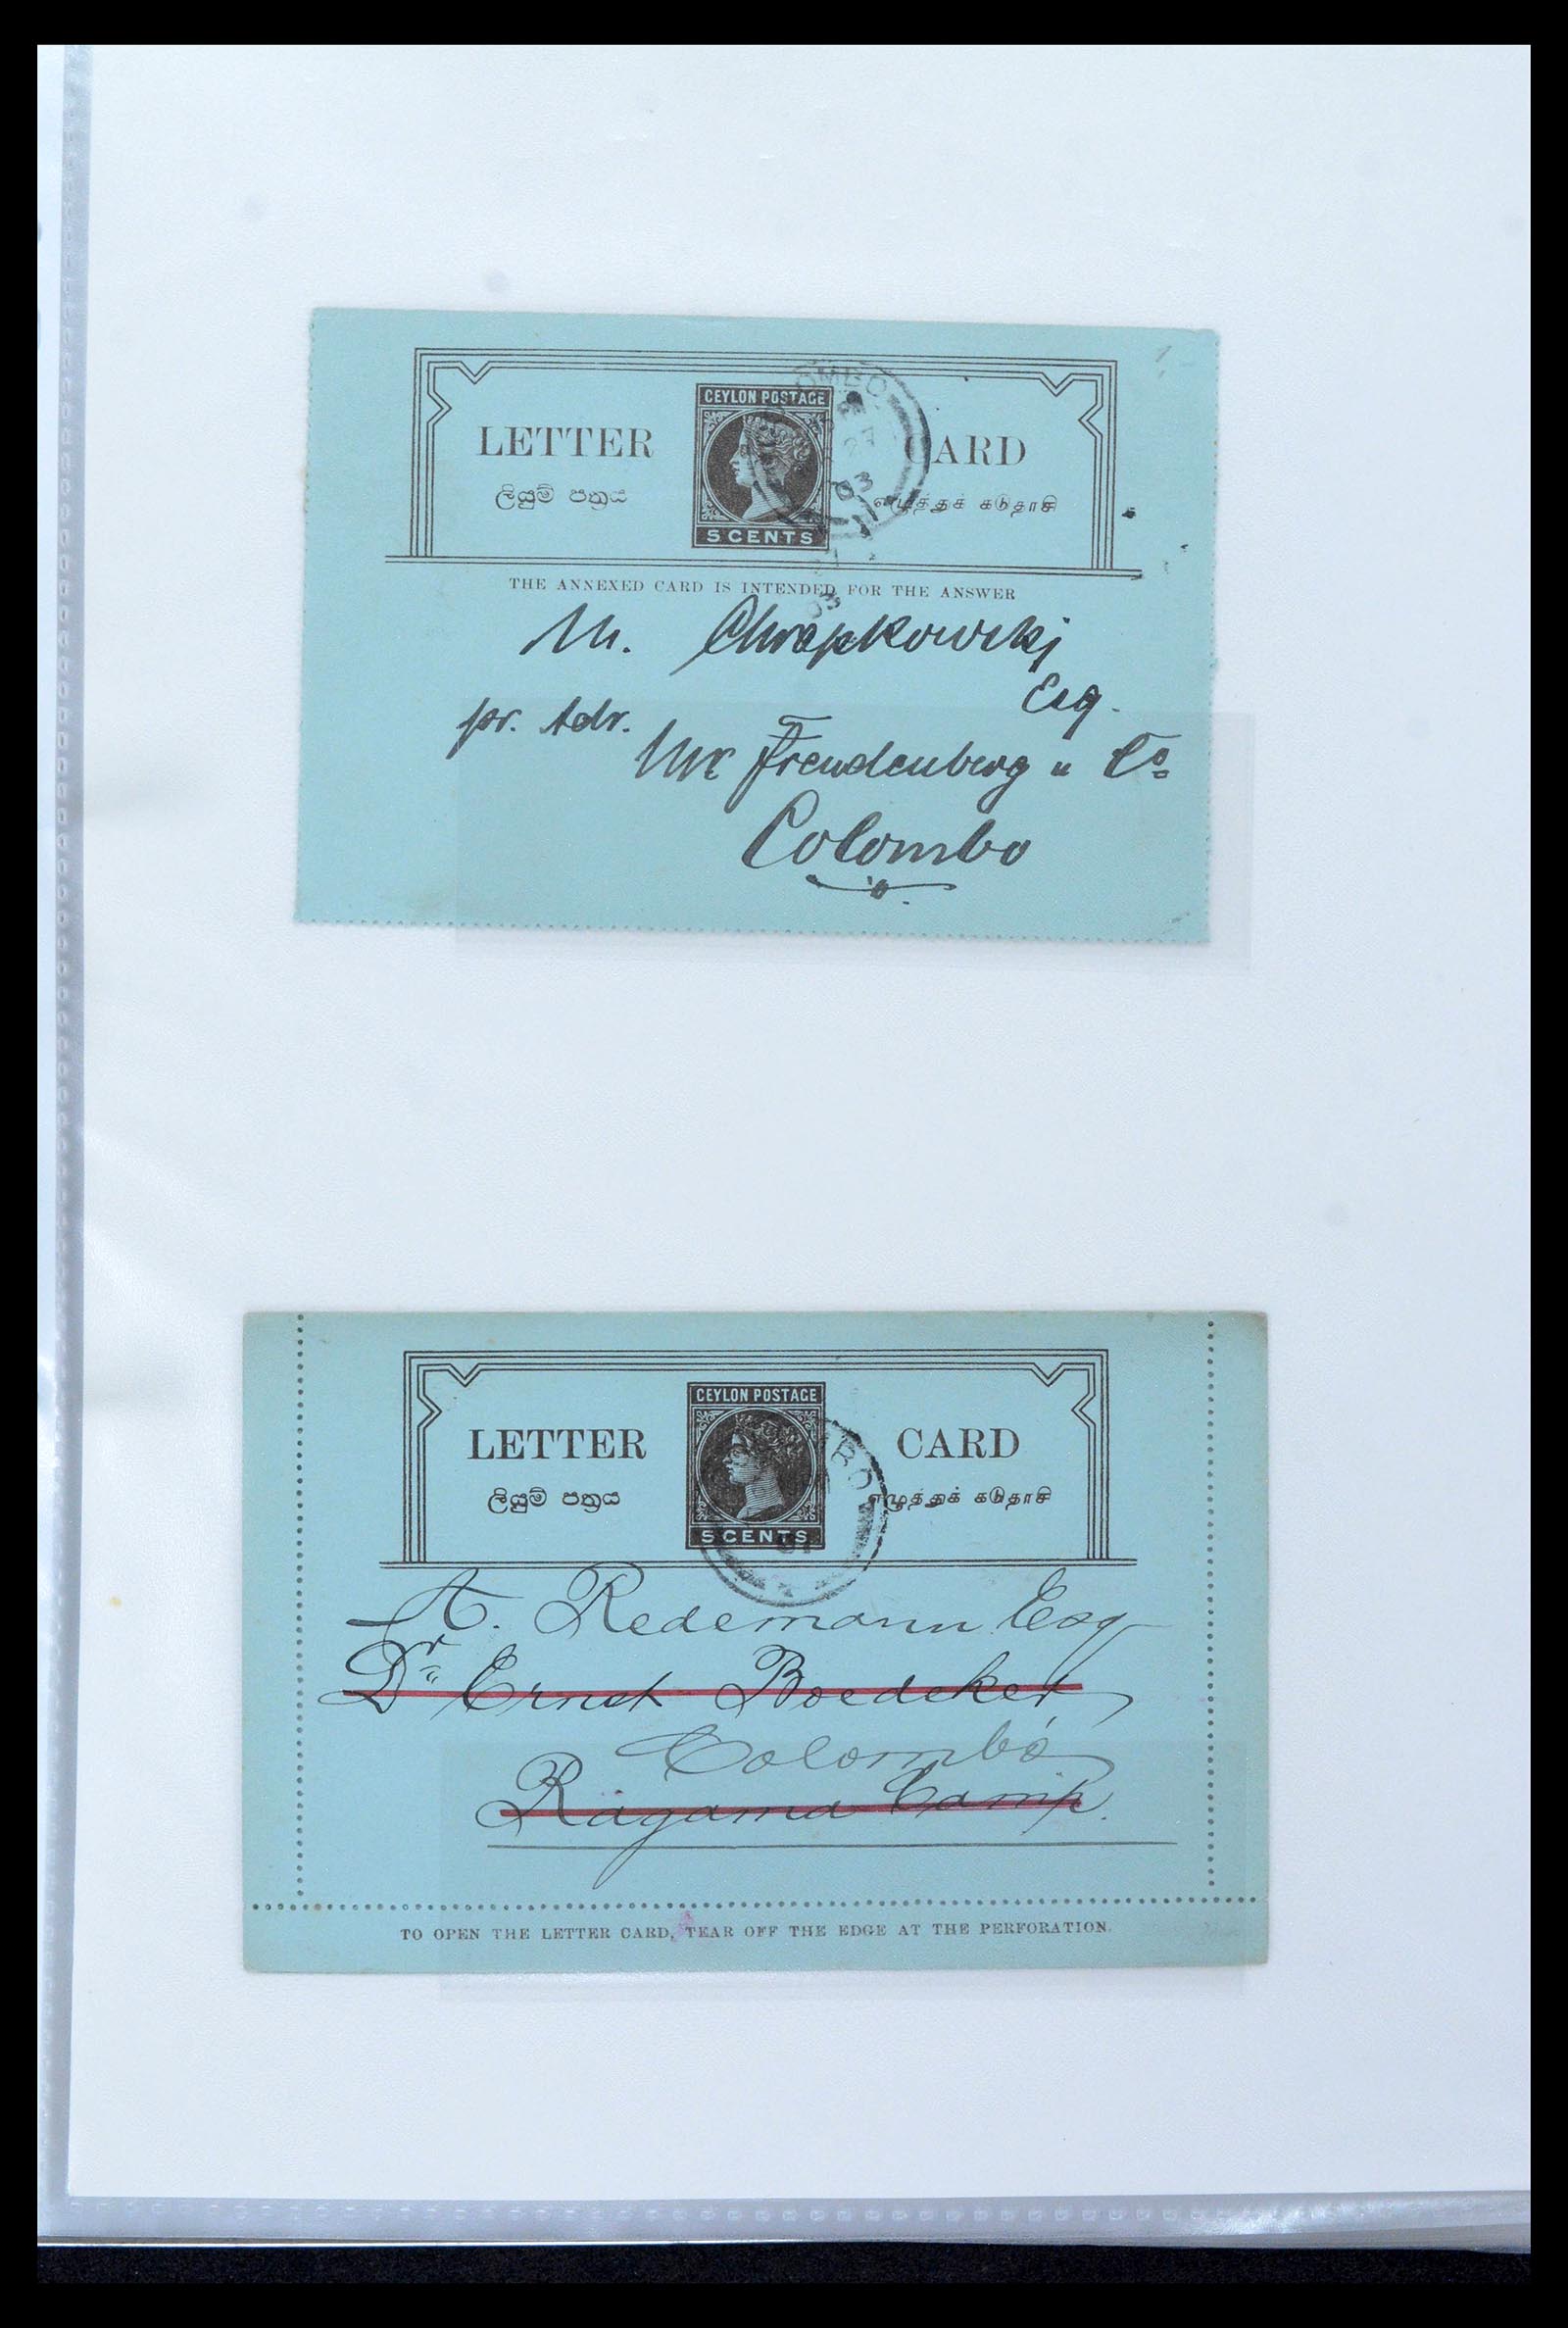 CEYLON POSTAGE
LETTER CARD
ලියුම් පත්‍රය எழுத்துக் கடுதாசி
5 CENTS
OMBO
27
03
THE ANNEXED CARD IS INTENDED FOR THE ANSWER
M. Chrapkowski
Esq.
pr. Adr.
Mr Freudenberg u Co
Colombo
CEYLON POSTAGE
LETTER CARD
ලියුම් පත්‍රය எழுத்துக் கடுதாசி
5 CENTS
MBO
01
A. Redemann Esq
Dr Ernst Boedeker,
Colombo
Ragama Camp.
TO OPEN THE LETTER CARD, TEAR OFF THE EDGE AT THE PERFORATION.